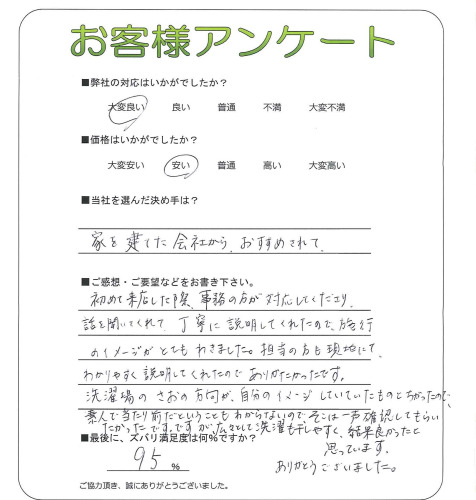 お客様アンケート
■弊社の対応はいかがでしたか？
大変良い 良い 普通 不満 大変不満
■価格はいかがでしたか？
大変安い 安い 普通 高い 大変高い
■当社を選んだ決め手は？
家を建てた会社から、おすすめされて、
■ご感想・ご要望などをお書き下さい。
初めて来店した際、事務の方が対応してくださり、
話を聞いてくれて、丁寧に説明してくれたので、施行
のイメージがとてもわきました。担当の方も現地にて、
わかりやすく説明してくれたのでありがたかったです。
洗濯場のさおの方向が、自分のイメージしていたものとちがったので、
素人で当たり前だということもわからないので、そこは一声確認してもらい
たかったです。ですが、広々として洗濯も干しやすく、結果良かったと
思っています。
ありがとうございました。
■最後に、ズバリ満足度は何％ですか？
95 %
ご協力頂き、誠にありがとうございました。